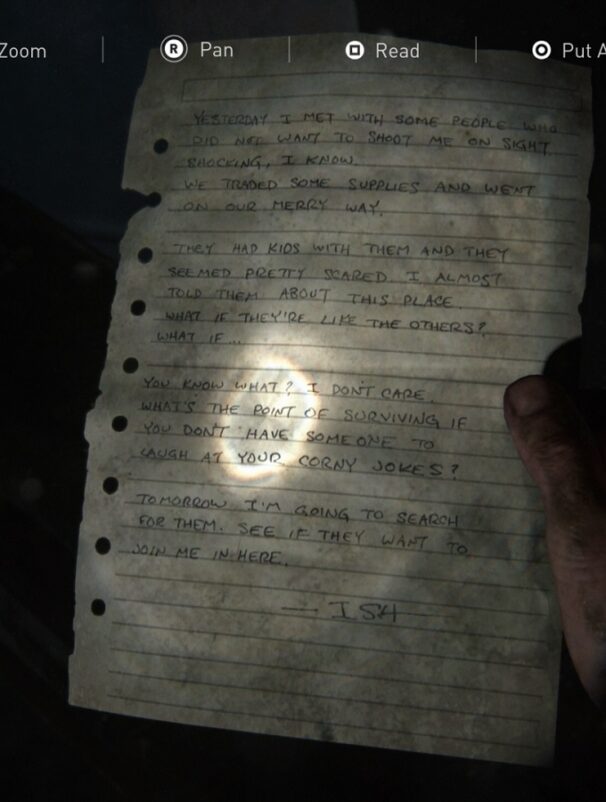 Zoom
R Pan
Read
Put A
YESTERDAY I MET WITH SOME PEOPLE WHO
DID NOT WANT TO SHOOT ME ON SIGHT.
SHOCKING, I KNOW.
WE TRADED SOME SUPPLIES AND WENT
ON OUR MERRY WAY.
THEY HAD KIDS WITH THEM AND THEY
SEEMED PRETTY SCARED. I ALMOST
TOLD THEM ABOUT THIS PLACE.
WHAT IF THEY'RE LIKE THE OTHERS?
WHAT IF...
YOU KNOW WHAT? I DON'T CARE.
WHAT'S THE POINT OF SURVIVING IF
YOU DON'T HAVE SOMEONE TO
LAUGH AT YOUR CORNY JOKES?
TOMORROW I'M GOING TO SEARCH
FOR THEM. SEE IF THEY WANT TO
JOIN ME IN HERE.
— ISH